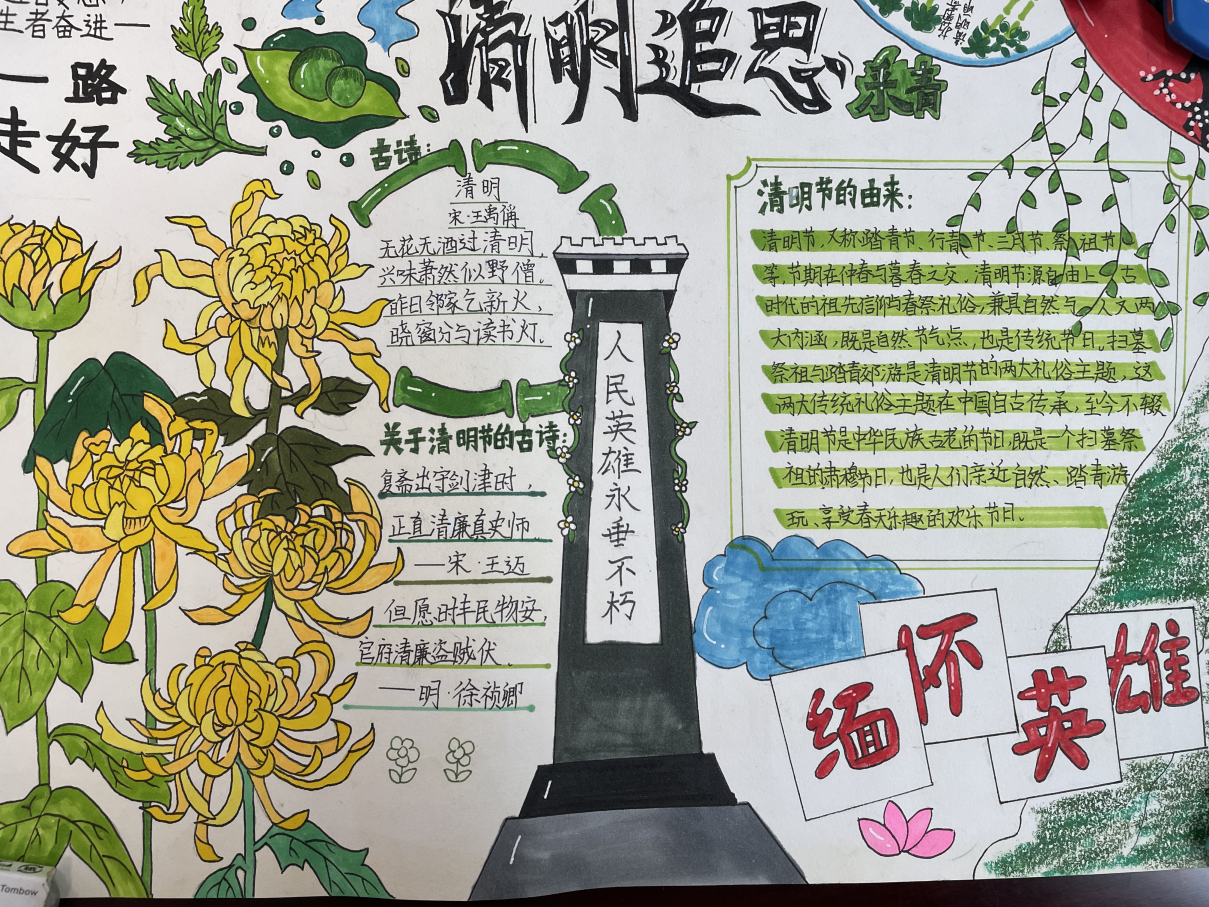 生者奋进一
一路
走好
清明追思
采青
古诗:
清明
宋·王禹偁
无花无酒过清明,
兴味萧然似野僧。
昨日邻家乞新火,
晓窗分与读书灯。
关于清明节的古诗:
复斋出宇剑津时,
正直清廉真史师
——宋·王迈
但愿时丰民物安,
官府清廉盗贼伏。
——明·徐祯卿
人民英雄永垂不朽
清明节的由来:
清明节,又称踏青节、行青节、三月节、祭祖节
等,节期在仲春与暮春之交,清明节源自由上古
时代的祖先信仰与春祭礼俗,兼具自然与人文两
大内涵,既是自然节气点,也是传统节日,扫墓
祭祖与踏青郊游是清明节的两大礼俗主题,这
两大传统礼俗主题在中国自古传承,至今不辍
清明节是中华民族古老的节日,既是一个扫墓祭
祖的肃穆节日,也是人们亲近自然、踏青游
玩、享受春天乐趣的欢乐节日。
缅怀英雄
Tombow